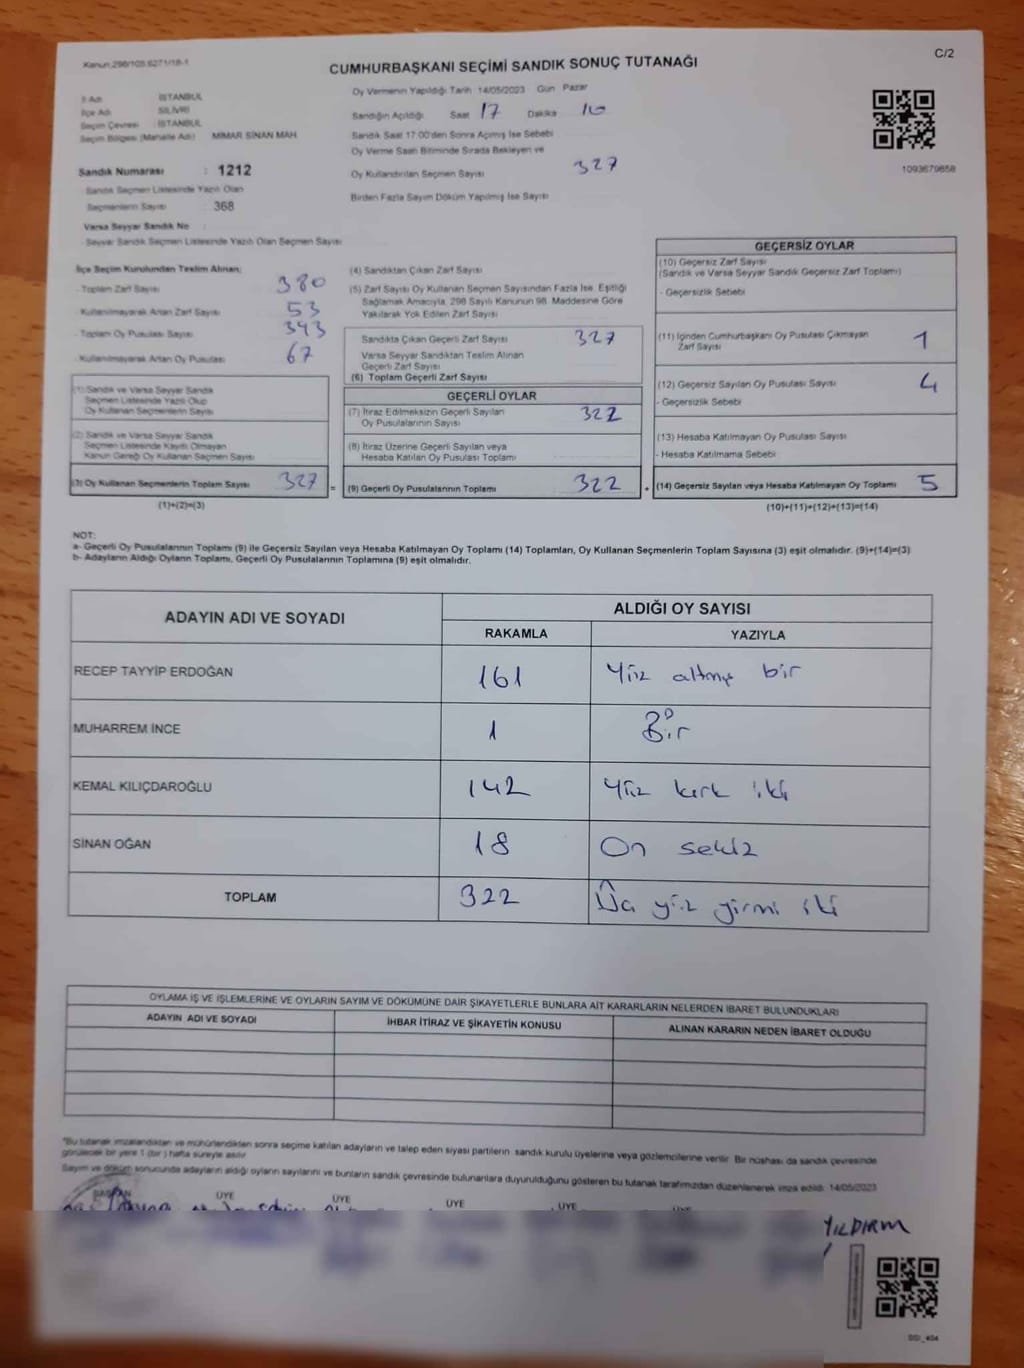 Kanun:298/105 6271/18-1
C/2
CUMHURBAŞKANI SEÇİMİ SANDIK SONUÇ TUTANAĞI
İl Adı : İSTANBUL
İlçe Adı : SİLİVRİ
Seçim Çevresi : İSTANBUL
Seçim Bölgesi (Mahalle Adı) : MİMAR SİNAN MAH.
Sandık Numarası : 1212
Sandık Seçmen Listesinde Yazılı Olan
Seçmenlerin Sayısı : 368
Varsa Seyyar Sandık No :
- Seyyar Sandık Seçmen Listesinde Yazılı Olan Seçmen Sayısı
Oy Vermenin Yapıldığı Tarih 14/05/2023 Gün Pazar
Sandığın Açıldığı Saat 17 Dakika 10
Sandık Saat 17:00'den Sonra Açılmış İse Sebebi
Oy Verme Saati Bitiminde Sırada Bekleyen ve
Oy Kullandırılan Seçmen Sayısı 327
Birden Fazla Sayım Döküm Yapılmış İse Sayısı
1093679858
İlçe Seçim Kurulundan Teslim Alınan;
- Toplam Zarf Sayısı 380
- Kullanılmayarak Artan Zarf Sayısı 53
- Toplam Oy Pusulası Sayısı 393
- Kullanılmayarak Artan Oy Pusulası 67
(1) Sandık ve Varsa Seyyar Sandık
Seçmen Listesinde Yazılı Olup
Oy Kullanan Seçmenlerin Sayısı
(2) Sandık ve Varsa Seyyar Sandık
Seçmen Listesinde Kayıtlı Olmayan
Kanun Gereği Oy Kullanan Seçmen Sayısı
(3) Oy Kullanan Seçmenlerin Toplam Sayısı 327 =
(1)+(2)=(3)
(4) Sandıktan Çıkan Zarf Sayısı
(5) Zarf Sayısı Oy Kullanan Seçmen Sayısından Fazla İse, Eşitliği
Sağlamak Amacıyla, 298 Sayılı Kanunun 98. Maddesine Göre
Yakılarak Yok Edilen Zarf Sayısı
Sandıkta Çıkan Geçerli Zarf Sayısı 327
Varsa Seyyar Sandıktan Teslim Alınan
Geçerli Zarf Sayısı
(6) Toplam Geçerli Zarf Sayısı
GEÇERLİ OYLAR
(7) İtiraz Edilmeksizin Geçerli Sayılan
Oy Pusulalarının Sayısı 322
(8) İtiraz Üzerine Geçerli Sayılan veya
Hesaba Katılan Oy Pusulası Toplamı
(9) Geçerli Oy Pusulalarının Toplamı 322 +
GEÇERSİZ OYLAR
(10) Geçersiz Zarf Sayısı
(Sandık ve Varsa Seyyar Sandık Geçersiz Zarf Toplamı)
- Geçersizlik Sebebi
(11) İçinden Cumhurbaşkanı Oy Pusulası Çıkmayan
Zarf Sayısı 1
(12) Geçersiz Sayılan Oy Pusulası Sayısı 4
- Geçersizlik Sebebi
(13) Hesaba Katılmayan Oy Pusulası Sayısı
- Hesaba Katılmama Sebebi
(14) Geçersiz Sayılan veya Hesaba Katılmayan Oy Toplamı 5
(10)+(11)+(12)+(13)=(14)
NOT:
a- Geçerli Oy Pusulalarının Toplamı (9) ile Geçersiz Sayılan veya Hesaba Katılmayan Oy Toplamı (14) Toplamları, Oy Kullanan Seçmenlerin Toplam Sayısına (3) eşit olmalıdır. (9)+(14)=(3)
b- Adayların Aldığı Oyların Toplamı, Geçerli Oy Pusulalarının Toplamına (9) eşit olmalıdır.
ADAYIN ADI VE SOYADI ALDIĞI OY SAYISI
RAKAMLA YAZIYLA
RECEP TAYYİP ERDOĞAN 161 Yüz altmış bir
MUHARREM İNCE 1 Bir
KEMAL KILIÇDAROĞLU 142 Yüz kırk iki
SİNAN OĞAN 18 On sekiz
TOPLAM 322 Üç yüz yirmi iki
OYLAMA İŞ VE İŞLEMLERİNE VE OYLARIN SAYIM VE DÖKÜMÜNE DAİR ŞİKAYETLERLE BUNLARA AİT KARARLARIN NELERDEN İBARET BULUNDUKLARI
ADAYIN ADI VE SOYADI İHBAR İTİRAZ VE ŞİKAYETİN KONUSU ALINAN KARARIN NEDEN İBARET OLDUĞU
*Bu tutanak imzalandıktan ve mühürlendikten sonra seçime katılan adayların ve talep eden siyasi partilerin sandık kurulu üyelerine veya gözlemcilerine verilir. Bir nüshası da sandık çevresinde
görülecek bir yere 1 (bir) hafta süreyle asılır
Sayım ve döküm sonucunda adayların aldığı oyların sayılarını ve bunların sandık çevresinde bulunanlara duyurulduğunu gösteren bu tutanak tarafımızdan düzenlenerek imza edildi. 14/05/2023
BAŞKAN ÜYE ÜYE ÜYE ÜYE
YILDIRIM